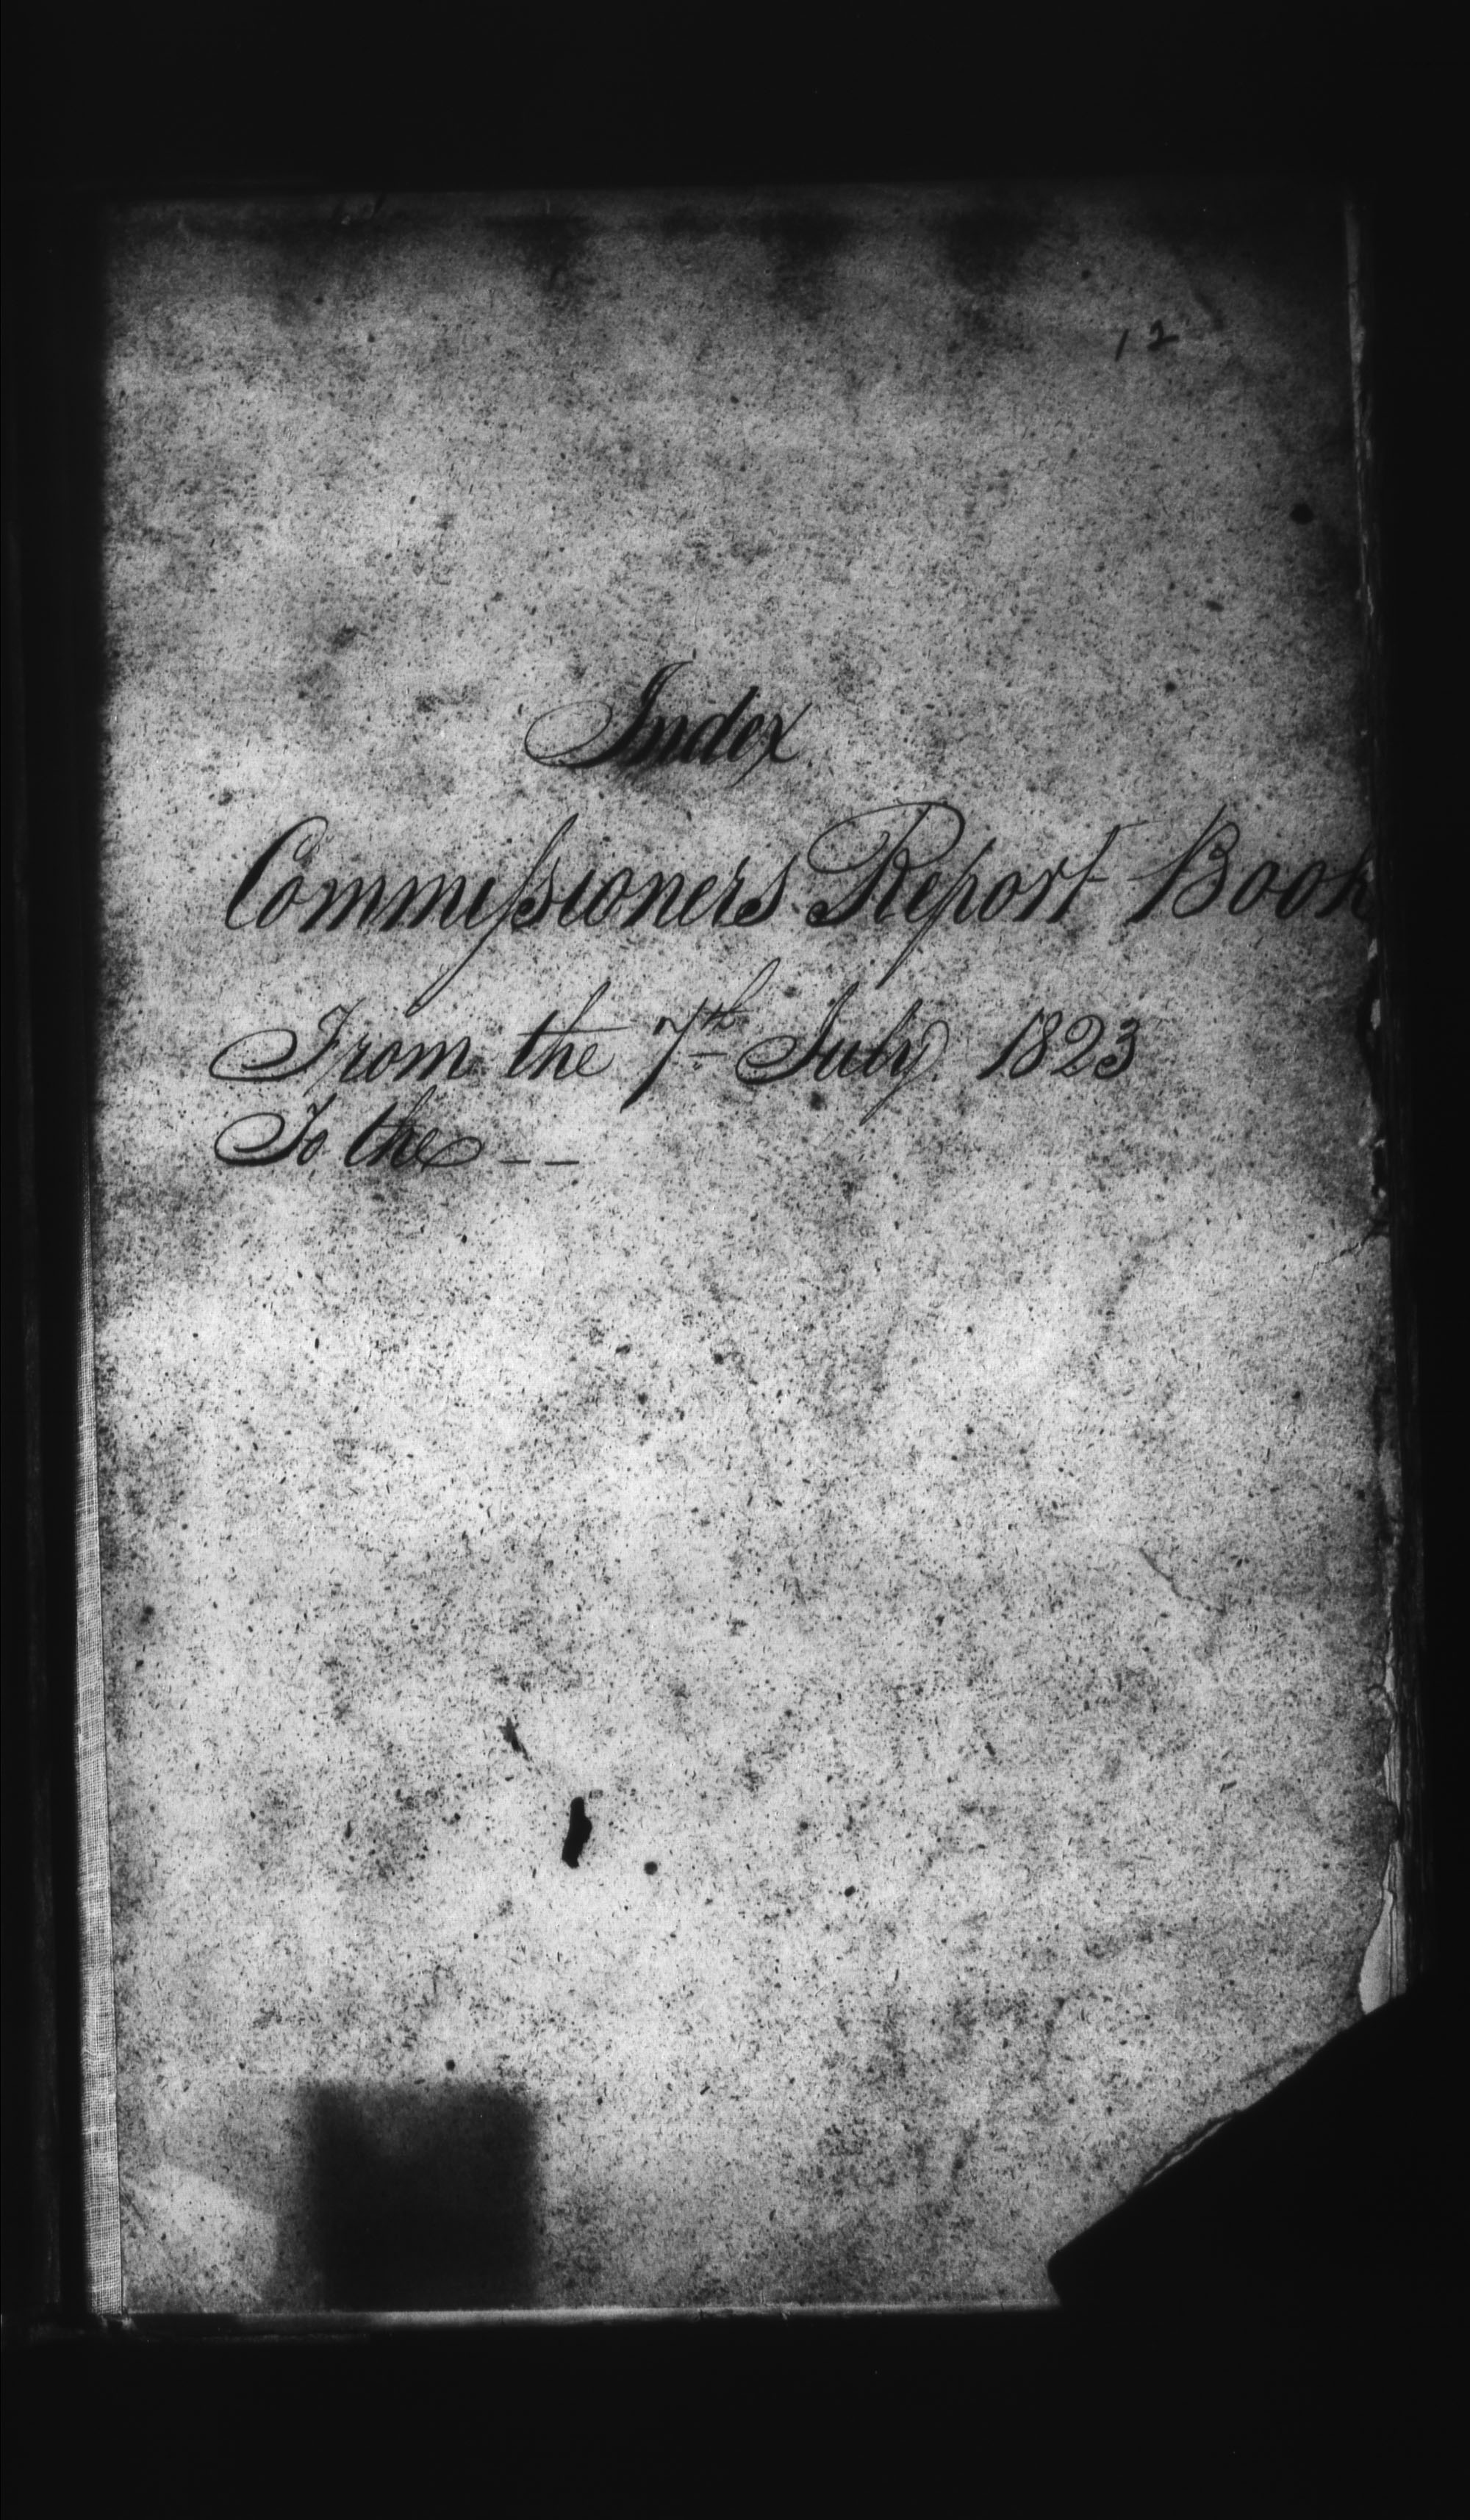 12
Index
Commiſsioners Report Book
From the 7th July 1823
To the — —